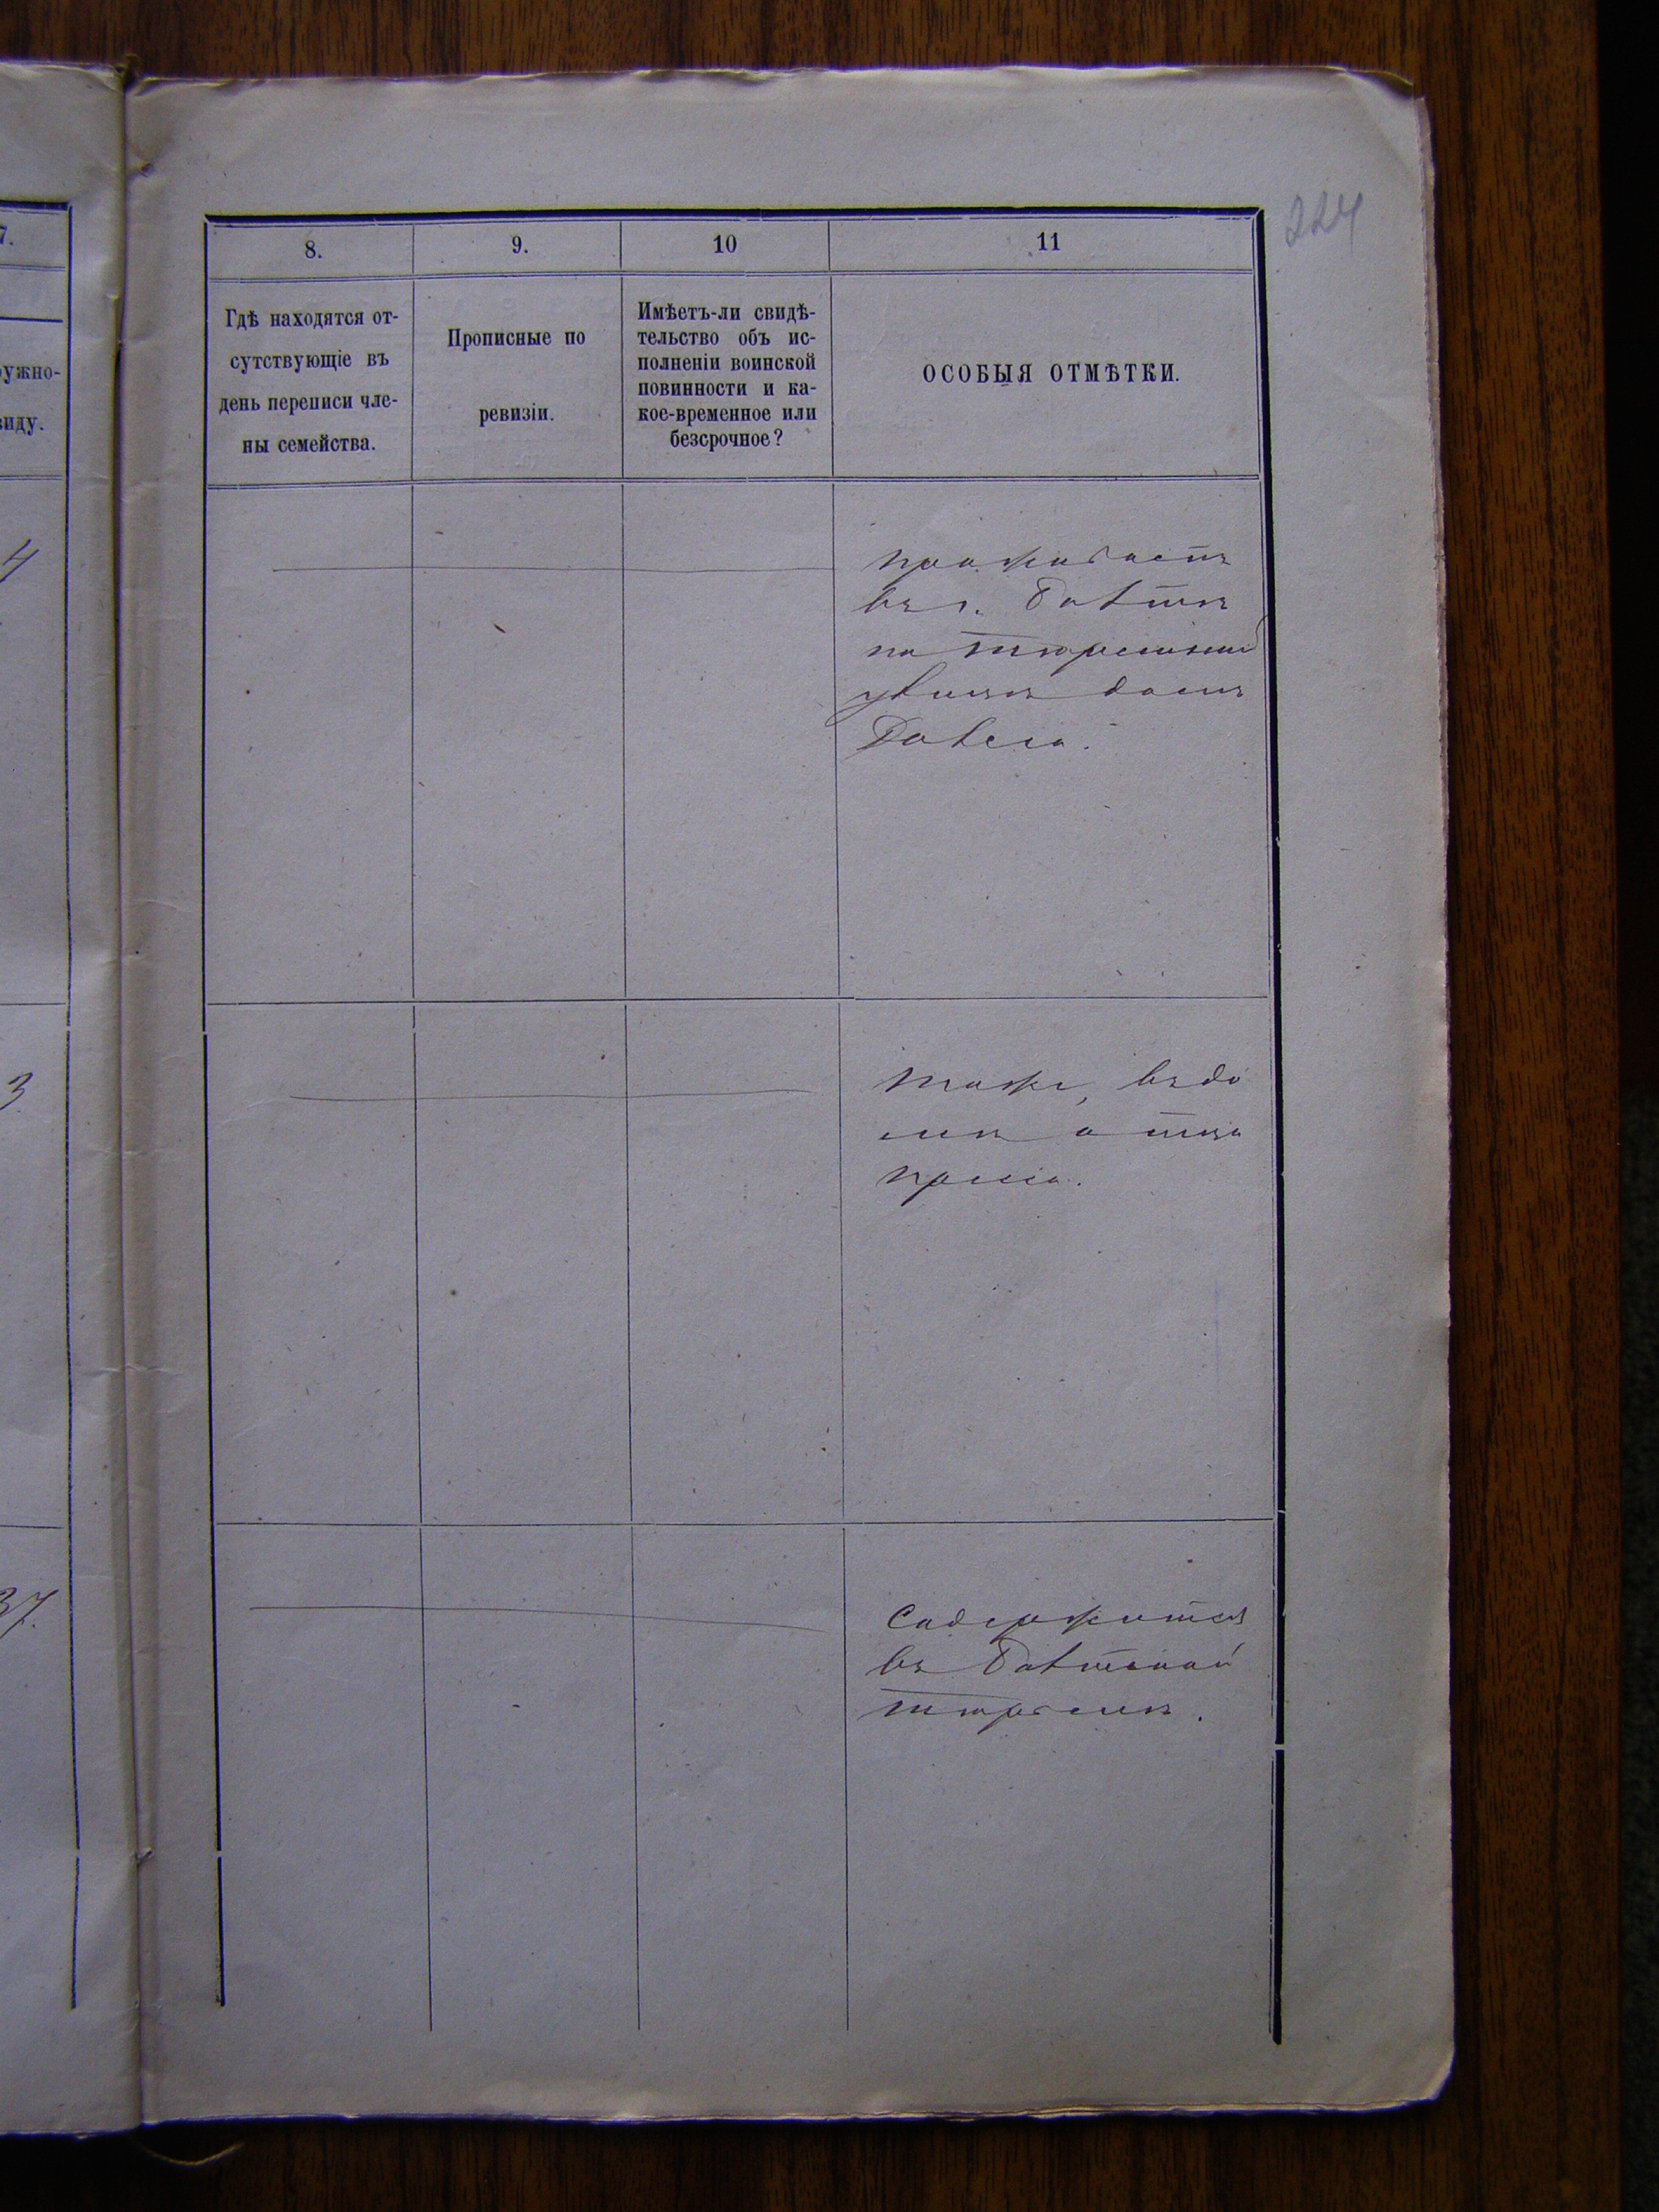 224
7.
8.
9.
10
11
ужно-
виду.
Гдѣ находятся от-
сутствующіе въ
день переписи чле-
ны семейства.
Прописные по
ревизіи.
Имѣетъ-ли свидѣ-
тельство объ ис-
полненіи воинской
повинности и ка-
кое-временное или
безсрочное?
ОСОБЫЯ ОТМѢТКИ.
4
проживаетъ
въ г. Балтѣ
на тюремной
улицѣ домъ
3
тоже, въ до
мѣ
37.
Содержится
въ Балтской
тюрьмѣ.